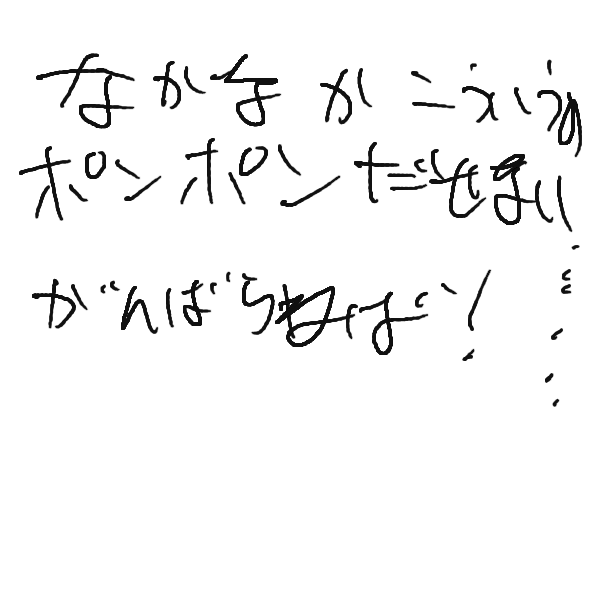 なかなか こえが
ポンポンだせない
がんばらねば!